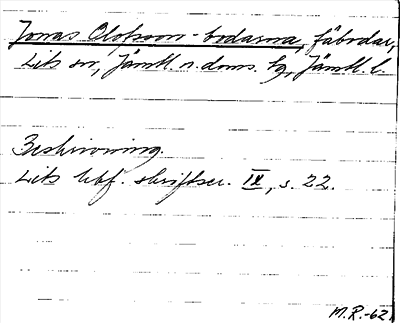 Jonas Olofsson-bodarna, fäbodar,
Lits sn, Jämtl. n. doms. hg, Jämtl. l.
Beskrivning.
Lits hbf. skriftser. IX, s. 22.
M.R.-62